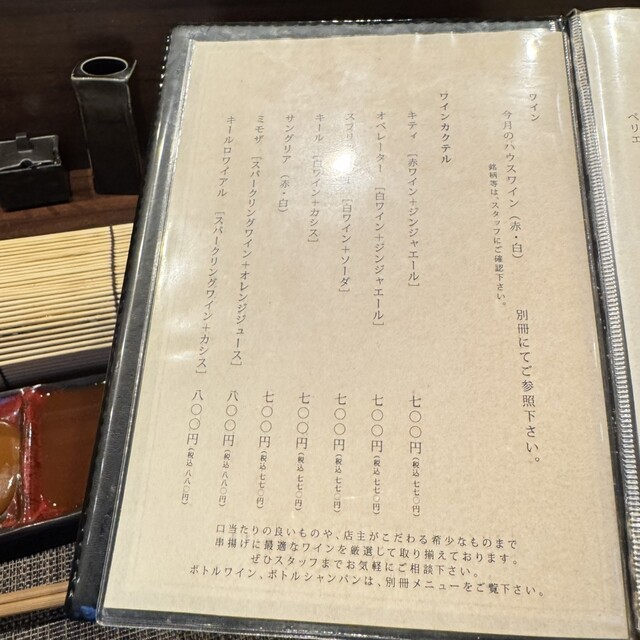 ワイン
今月のハウスワイン（赤・白）　別冊にてご参照下さい。
銘柄等は、スタッフにご確認下さい。
ワインカクテル
キティ［赤ワイン＋ジンジャエール］　七〇〇円（税込 七七〇円）
オペレーター［白ワイン＋ジンジャエール］　七〇〇円（税込 七七〇円）
［白ワイン＋ソーダ］　七〇〇円（税込 七七〇円）
キール［白ワイン＋カシス］　七〇〇円（税込 七七〇円）
サングリア（赤・白）　七〇〇円（税込 七七〇円）
ミモザ［スパークリングワイン＋オレンジジュース］　八〇〇円（税込 八八〇円）
キールロワイアル［スパークリングワイン＋カシス］　八〇〇円（税込 八八〇円）
口当たりの良いものや、店主がこだわる希少なものまで
串揚げに最適なワインを厳選して取り揃えております。
ぜひスタッフまでお気軽にご相談下さい。
ボトルワイン、ボトルシャンパンは、別冊メニューをご覧下さい。
ペリエ